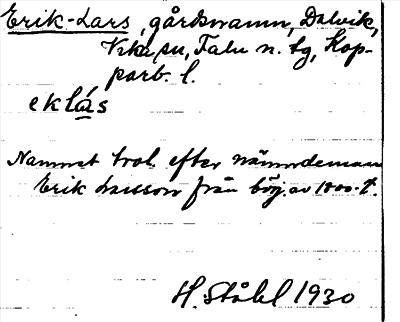 Erik-Lars, gårdsnamn, Dalvik,
Vika sn, Falu n. tg, Kop-
parb. l.
eklás
Namnet trol. efter nämndeman
Erik Larsson från börj. av 1800-t.
H. Ståhl 1930